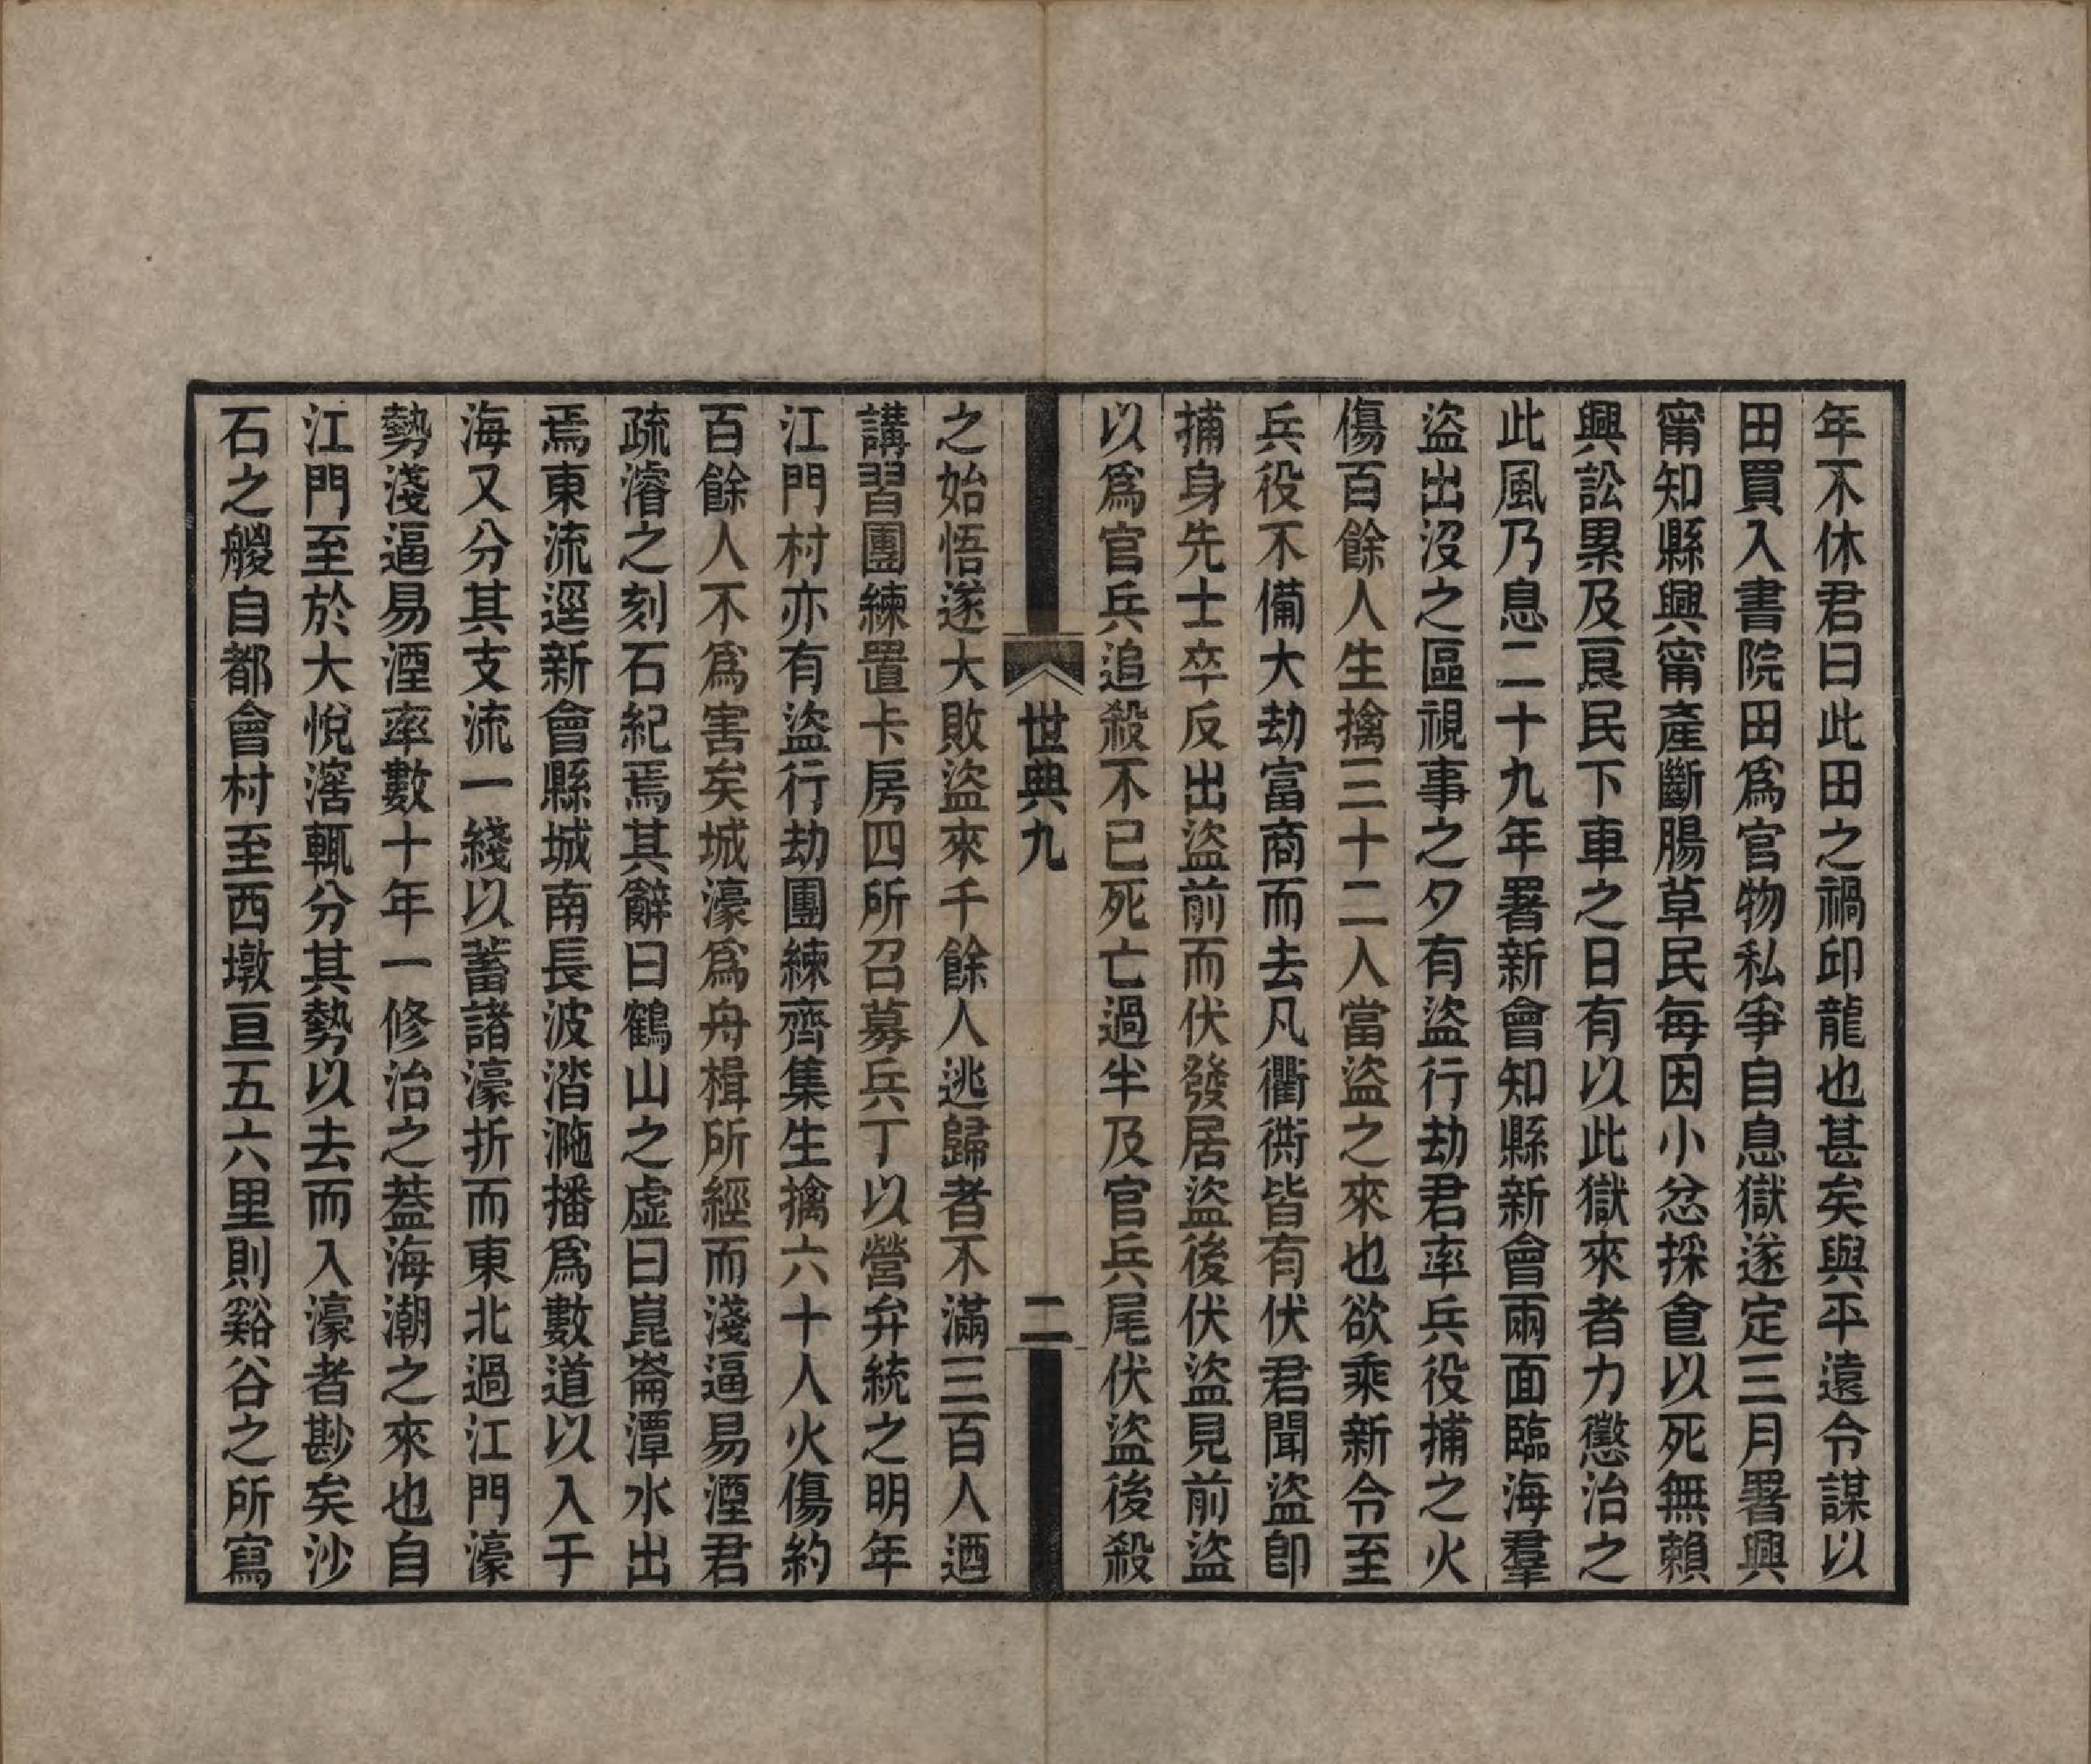 年不休君曰此田之禍印龍也甚矣與平遠令謀以
田買入書院田爲官物私爭自息獄遂定三月署興
甯知縣興甯產斷腸草民每因小忿採食以死無賴
興訟累及良民下車之日有以此獄來者力懲治之
此風乃息二十九年署新會知縣新會兩面臨海羣
盜出沒之區視事之夕有盜行劫君率兵役捕之火
傷百餘人生擒三十二人當盜之來也欲乘新令至
兵役不備大劫富商而去凡衢衖皆有伏君聞盜卽
捕身先士卒反出盜前而伏發居盜後伏盜見前盜
以爲官兵追殺不已死亡過半及官兵尾伏盜後殺
世典九 二
之始悟遂大敗盜來千餘人逃歸者不滿三百人迺
講習團練置卡房四所召募兵丁以營弁統之明年
江門村亦有盜行劫團練齊集生擒六十人火傷約
百餘人不爲害矣城濠爲舟楫所經而淺逼易湮君
疏濬之刻石紀焉其辭曰鶴山之虛曰崑崙潭水出
焉東流逕新會縣城南長波涾湤播爲數道以入于
海又分其支流一綫以蓄諸濠折而東北過江門濠
勢淺逼易湮率數十年一修治之葢海潮之來也自
江門至於大悅滘輒分其勢以去而入濠者尠矣沙
石之艐自都會村至西墩亘五六里則谿谷之所寫